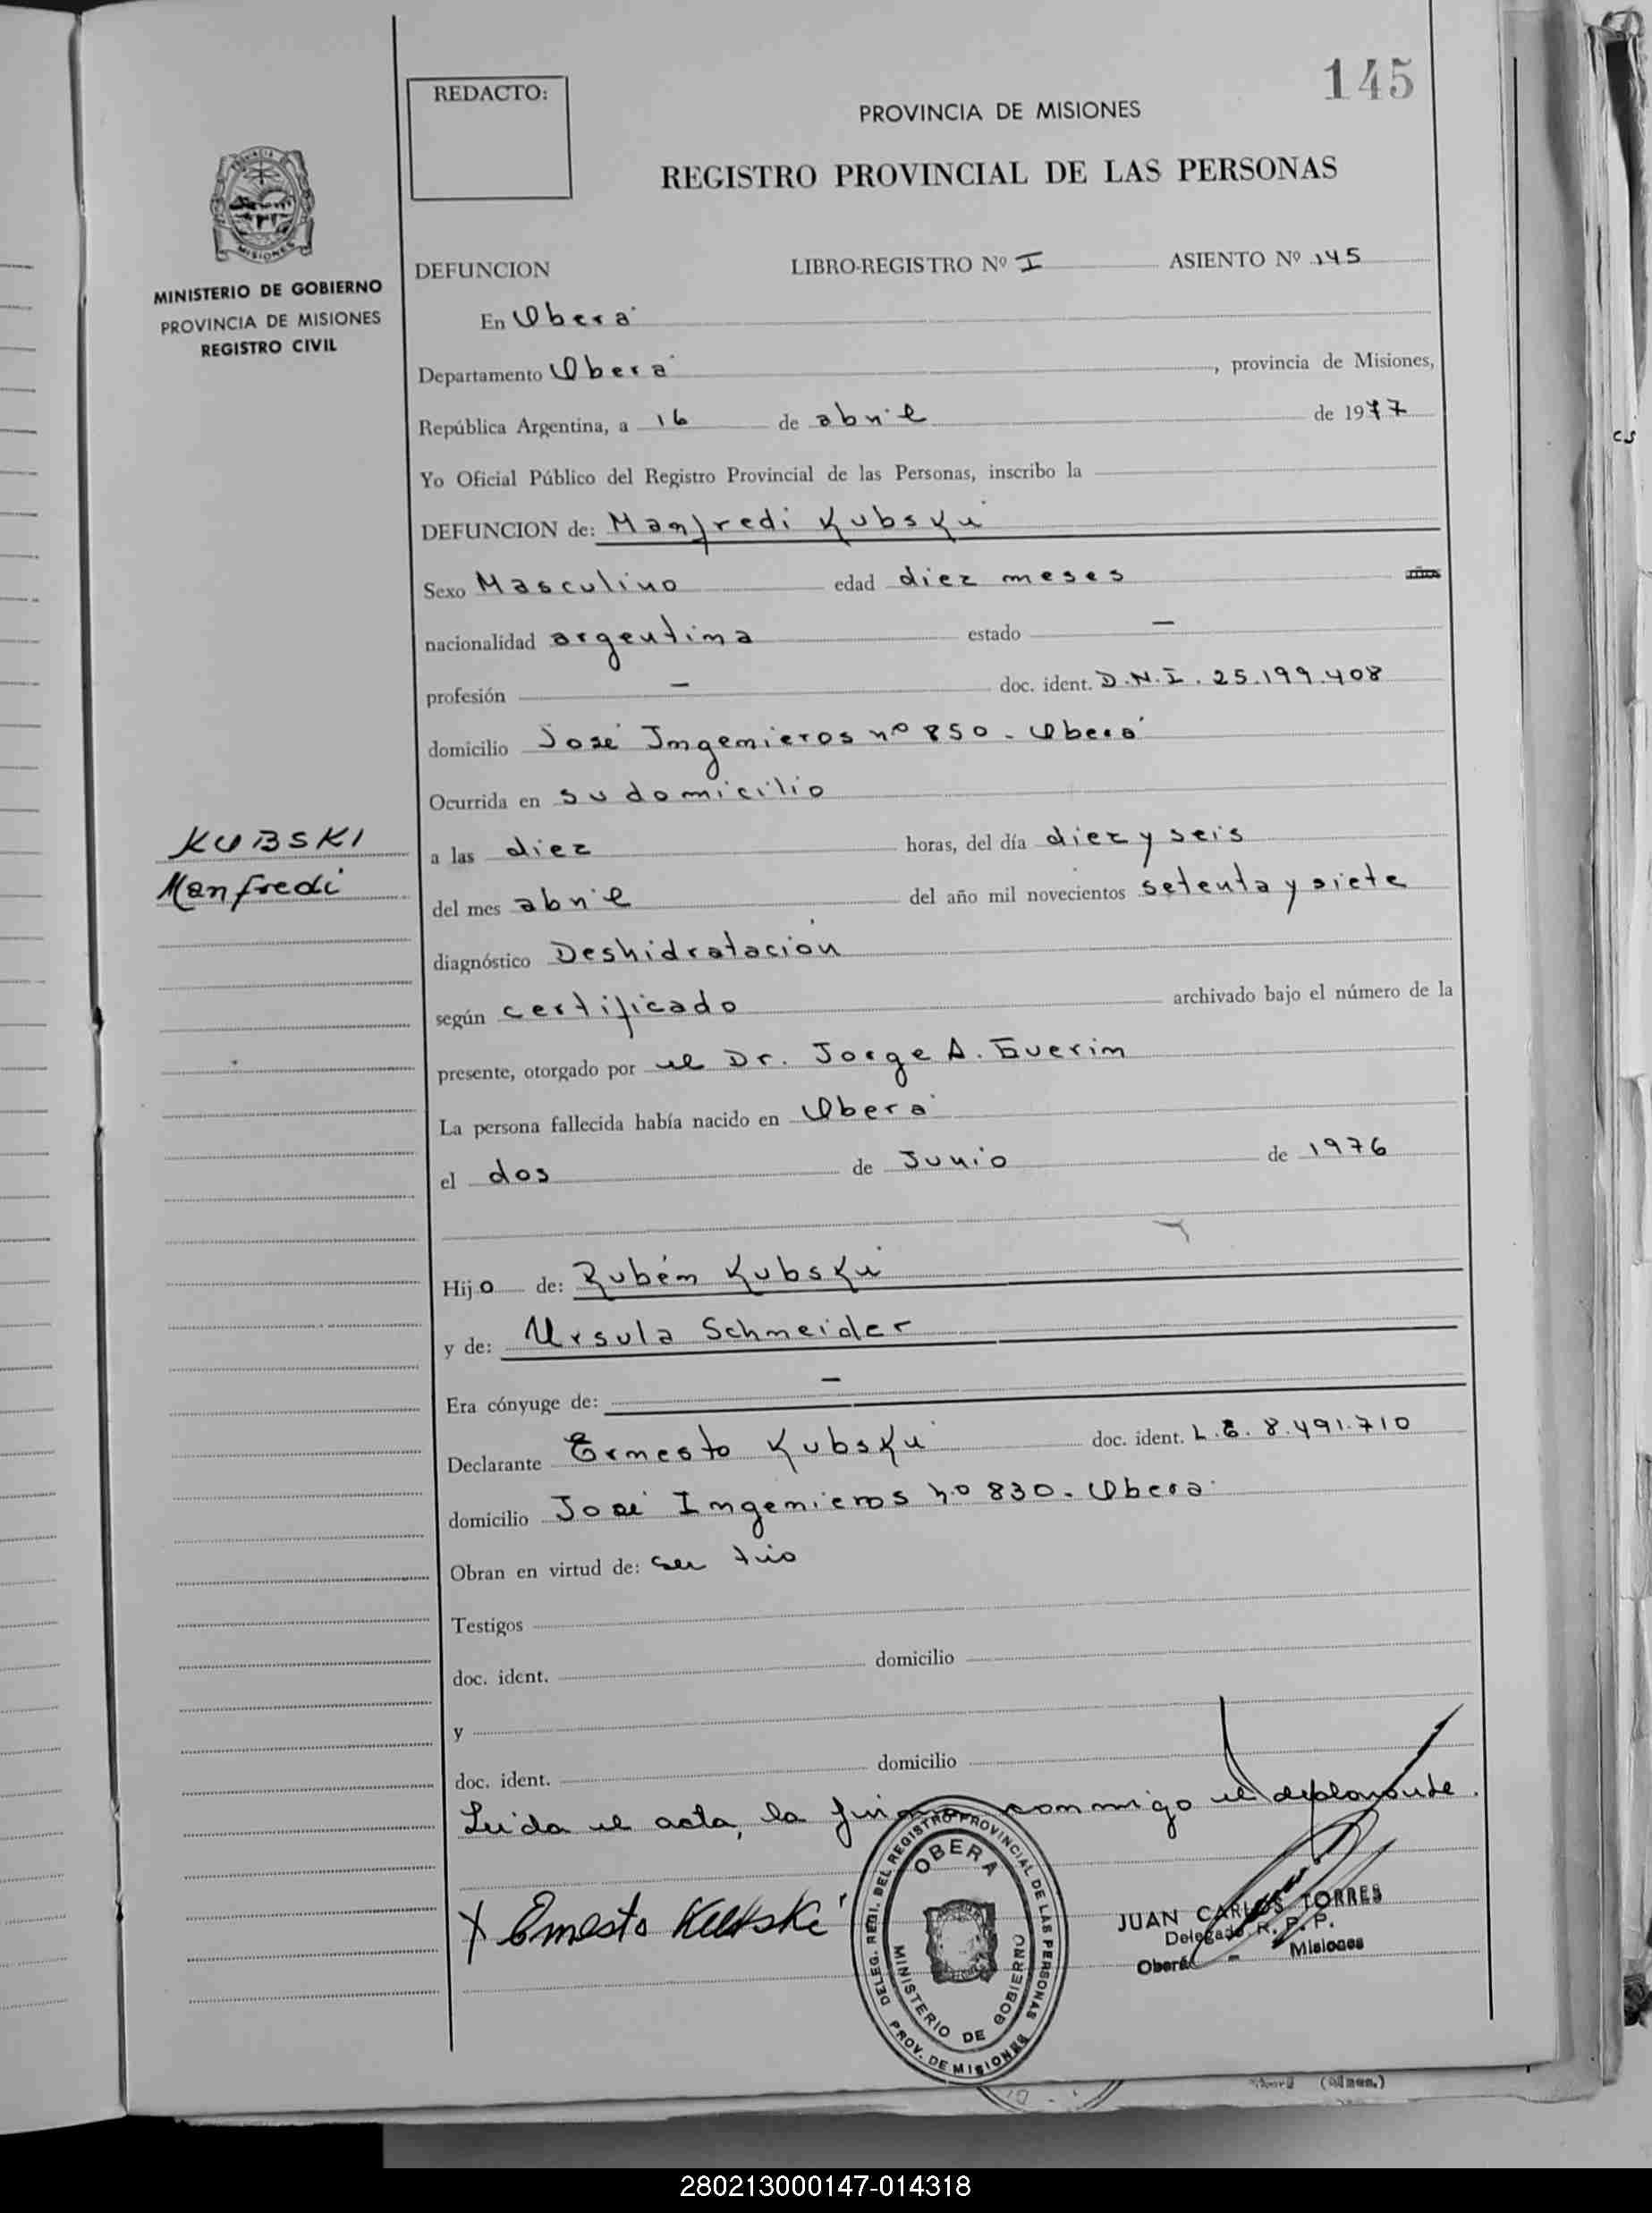 145
REDACTO:
PROVINCIA DE MISIONES
REGISTRO PROVINCIAL DE LAS PERSONAS
MISIONES
MINISTERIO DE GOBIERNO
PROVINCIA DE MISIONES
REGISTRO CIVIL
DEFUNCION LIBRO-REGISTRO Nº I ASIENTO Nº 145
En Oberá
Departamento Oberá, provincia de Misiones,
República Argentina, a 16 de abril de 1977
Yo Oficial Público del Registro Provincial de las Personas, inscribo la
DEFUNCION de: Manfredi Kubski
Sexo Masculino edad diez meses años
nacionalidad argentina estado —
profesión — doc. ident. D.N.I. 25.199.408
domicilio José Ingenieros nº 850 - Oberá
Ocurrida en su domicilio
KUBSKI
Manfredi
a las diez horas, del día diez y seis
del mes abril del año mil novecientos setenta y siete
diagnóstico Deshidratación
según certificado archivado bajo el número de la
presente, otorgado por el Dr. Jorge A. Guerin
La persona fallecida había nacido en Oberá
el dos de Junio de 1976
Hijo de: Rubén Kubski
y de: Ursula Schneider
Era cónyuge de: —
Declarante Ernesto Kubski doc. ident. L.E. 8.491.710
domicilio José Ingenieros nº 830 - Oberá
Obran en virtud de: ser tio
Testigos
doc. ident. domicilio
y
doc. ident. domicilio
Leida el acta, la firma conmigo el declarante.
X Ernesto Kubski
DELEG. REGI. DEL REGISTRO PROVINCIAL DE LAS PERSONAS
OBERA
MINISTERIO DE GOBIERNO
PROV. DE MISIONES
JUAN CARLOS TORRES
Delegado R. P. P.
Oberá - Misiones
280213000147-014318